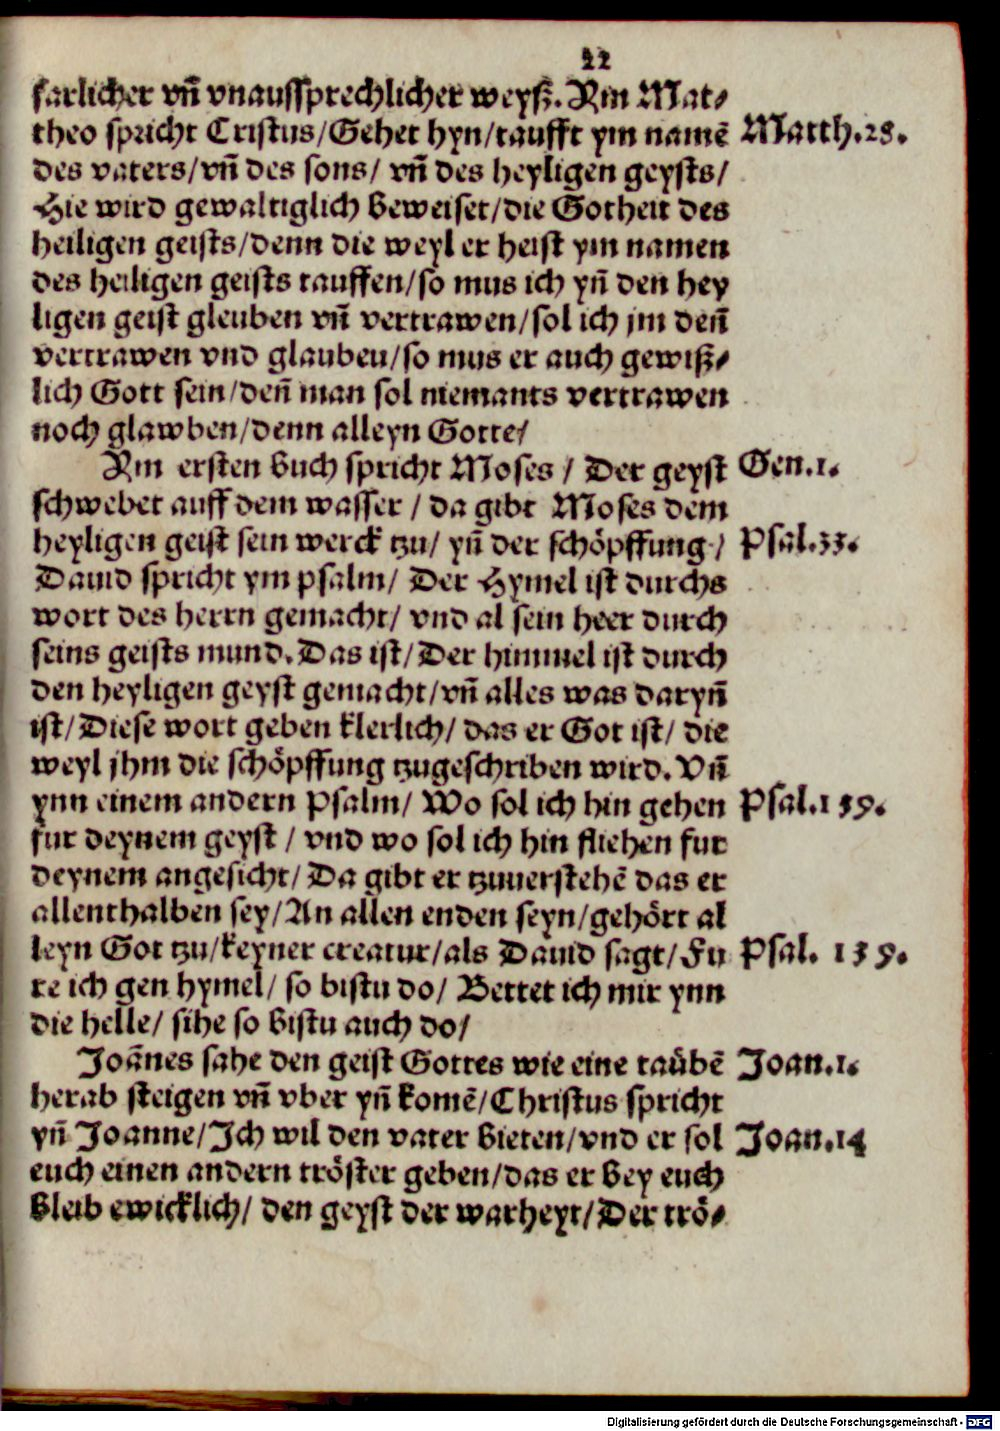 22
farlicher vñ vnaussprechlicher weyß. Ym Mat⸗
theo spricht Cristus/Gehet hyn/taufft ym namē Matth.28.
des vaters/vñ des sons/ vñ des heyligen geysts/
Hie wird gewaltiglich beweiset/die Gotheit des
heiligen geists/denn die weyl er heist ym namen
des heiligen geists tauffen/so mus ich yñ den hey
ligen geist gleuben vñ vertrawen/sol ich jm deñ
vertrawen vnd glauben/so mus er auch gewiß⸗
lich Gott sein/deñ man sol niemants vertrawen
noch glawben/denn alleyn Gotte/
Ym ersten buch spricht Moses / Der geyst Gen.1.
schwebet auff dem wasser / da gibt Moses dem
heyligen geist sein werck tzu/ yñ der schöpffung/ Psal.33.
Dauid spricht ym psalm/ Der Hymel ist durchs
wort des herrn gemacht/ vnd al sein heer durch
seins geists mund. Das ist/ Der himmel ist durch
den heyligen geyst gemacht/vñ alles was daryñ
ist/Diese wort geben klerlich/ das er Got ist/ die
weyl jhm die schöpffung tzugeschriben wird. Vñ
ynn einem andern Psalm/ Wo sol ich hin gehen Psal.139.
fur deynem geyst / vnd wo sol ich hin fliehen fur
deynem angesicht/ Da gibt er tzuuerstehē das er
allenthalben sey/An allen enden seyn/gehört al
leyn Got tzu/keyner creatur/als Dauid sagt/Fu Psal. 139.
re ich gen hymel/ so bistu do/ Bettet ich mir ynn
die helle/ sihe so bistu auch do/
Joānes sahe den geist Gottes wie eine taůbē Joan.1.
herab steigen vñ vber yñ komē/Christus spricht
yñ Joanne/Ich wil den vater bieten/vnd er sol Joan.14
euch einen andern tröster geben/das er bey euch
bleib ewicklich/ den geyst der warheyt/Der trö⸗
Digitalisierung gefördert durch die Deutsche Forschungsgemeinschaft - DFG